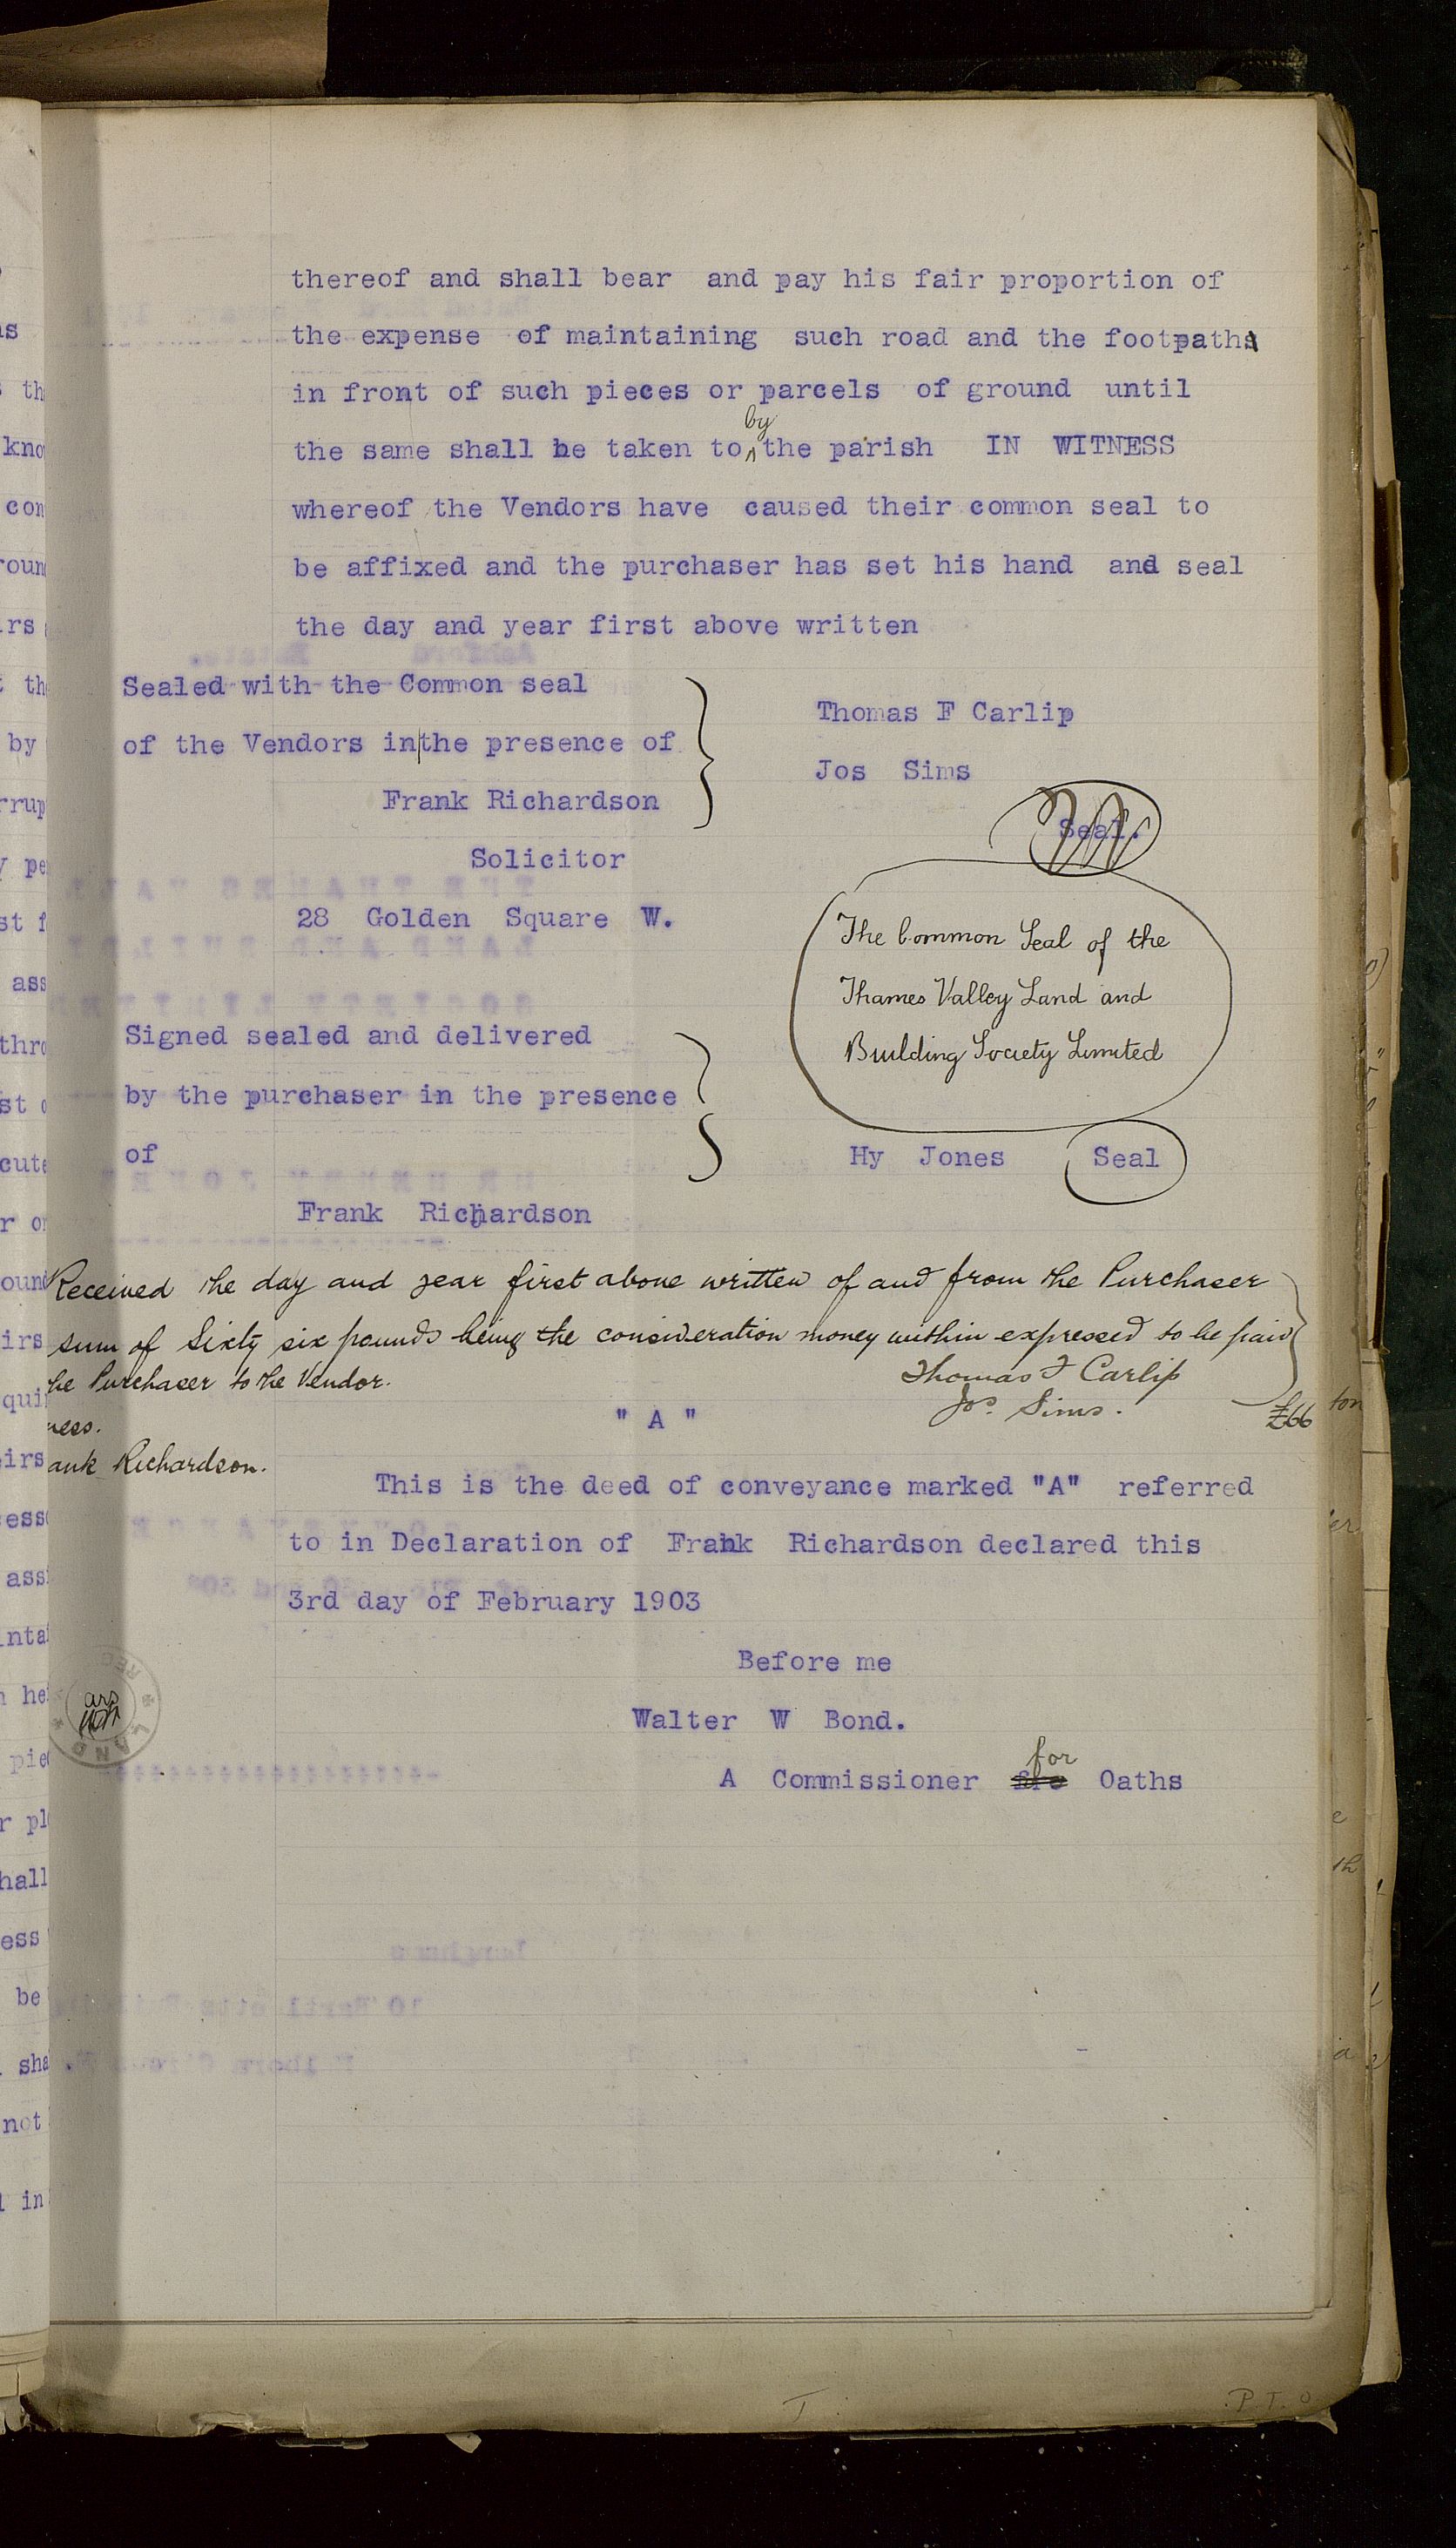 thereof and shall bear and pay his fair proportion of
the expense of maintaining such road and the footpaths
in front of such pieces or parcels of ground until
by
the same shall be taken to the parish IN WITNESS
whereof the Vendors have caused their common seal to
be affixed and the purchaser has set his hand and seal
the day and year first above written
Sealed with the Common seal
of the Vendors in the presence of
Frank Richardson
Solicitor
28 Golden Square W.
Thomas F Carlip
Jos Sims
Seal.
The Common Seal of the
Thames Valley Land and
Building Society Limited
Signed sealed and delivered
by the purchaser in the presence
of
Frank Richardson
Hy Jones Seal
Received the day and year first above written of and from the Purchaser
sum of Sixty six pounds being the consideration money within expressed to be paid
he Purchaser to the Vendor.
Thomas F Carlip
Jos. Sims.
£66
ness.
ank Richardson.
" A "
This is the deed of conveyance marked "A" referred
to in Declaration of Frank Richardson declared this
3rd day of February 1903
Before me
Walter W Bond.
for
A Commissioner Oaths
LAND REG
P.T.O